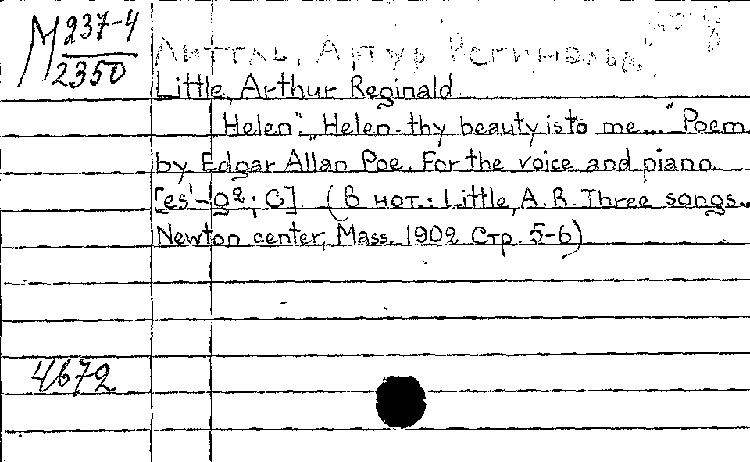 М 237-4
2350
Литтль, Артур Регинольд.
Little, Arthur Reginald.
"Helen". "Helen - thy beauty is to me..." Poem
by Edgar Allan Poe. For the voice and piano.
[es¹-g²; C]. (В нот.: Little, A. R. Three songs.
Newton center, Mass. 1902 Стр. 5-6)
4672